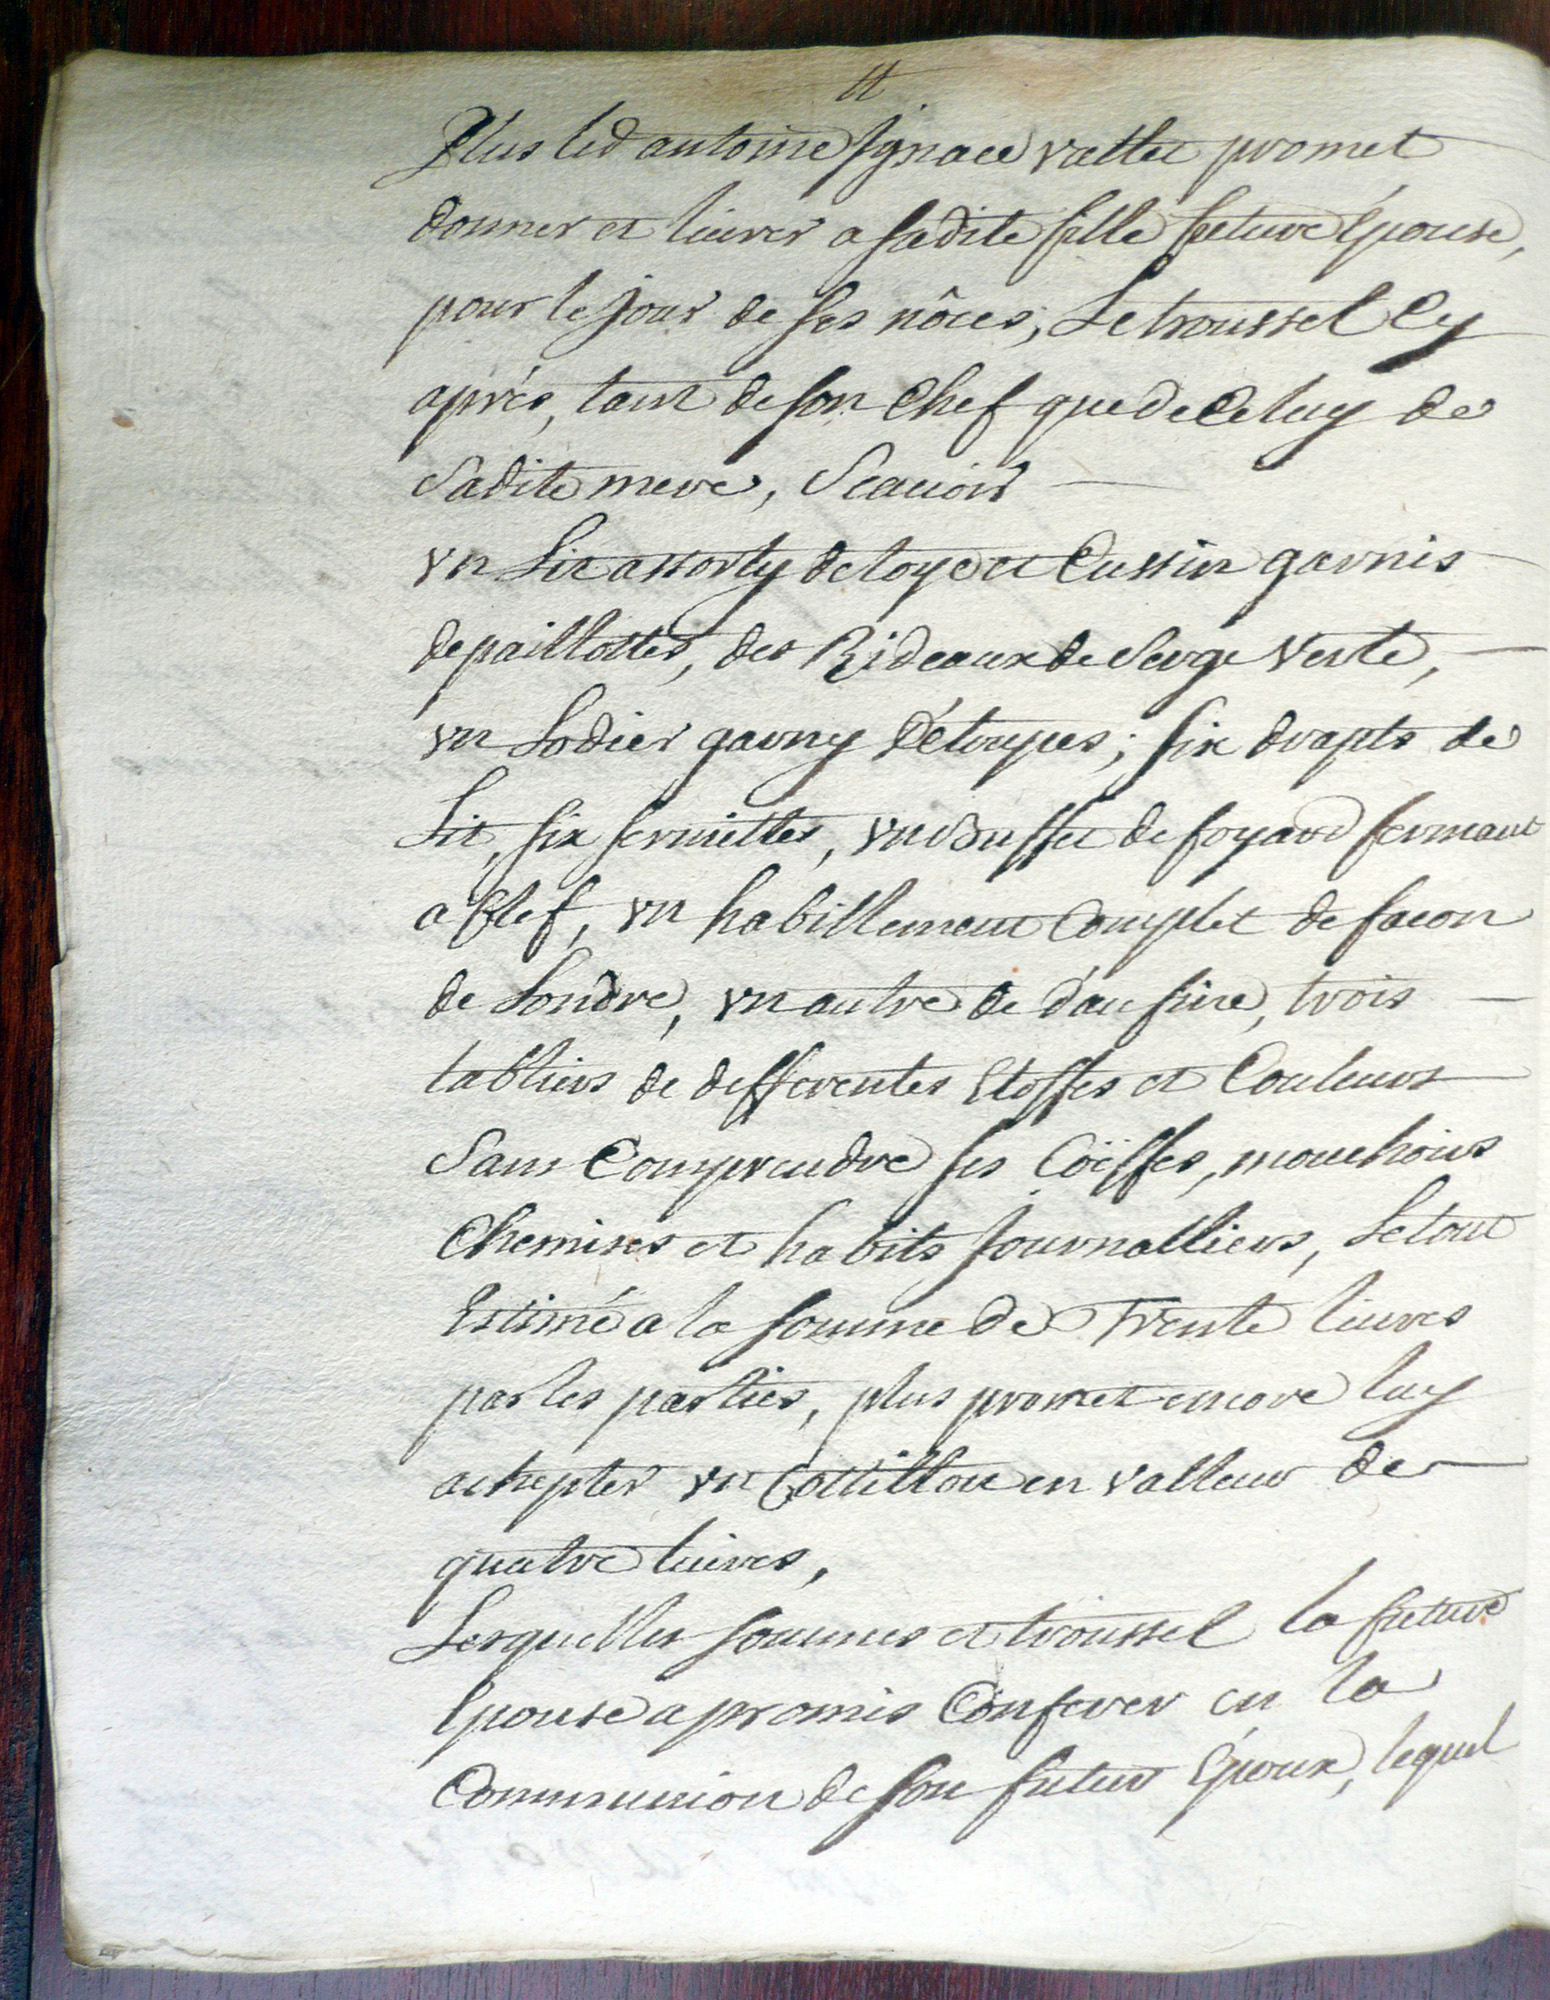 tt
Plus led antoine Ignace vallet promet
donner et liurer a sadite fille future Epouse,
pour le jour de ses nôces, Le troussel Cy
aprés, tant de son Chef que de Celuy de
Sadite mere, Scauoir
vn Lit assorty de toye et Cussin garnis
de paillottes, des Rideaux de Serge verte,
vn Lodier garny D'étoupes; six drapts de
Lit, six seruiettes, vn Buffet de foyard fermant
a Clef, vn habillement Complet de facon
de Londre, vn autre de d'au fine, trois
tabliers de differentes Etoffes et Couleurs
Sans Comprendre ses Coëffes, mouchoirs
Chemises et habits Journalliers, Le tout
Estimé a la somme de Trente liures
par les parties, plus promet encore luy
achepter vn Cottillon en valleur de
quatre liures,
Lesquelles sommes et troussel la future
Epouse a promis Conferer en la
Communion de son futur Epoux, lequel